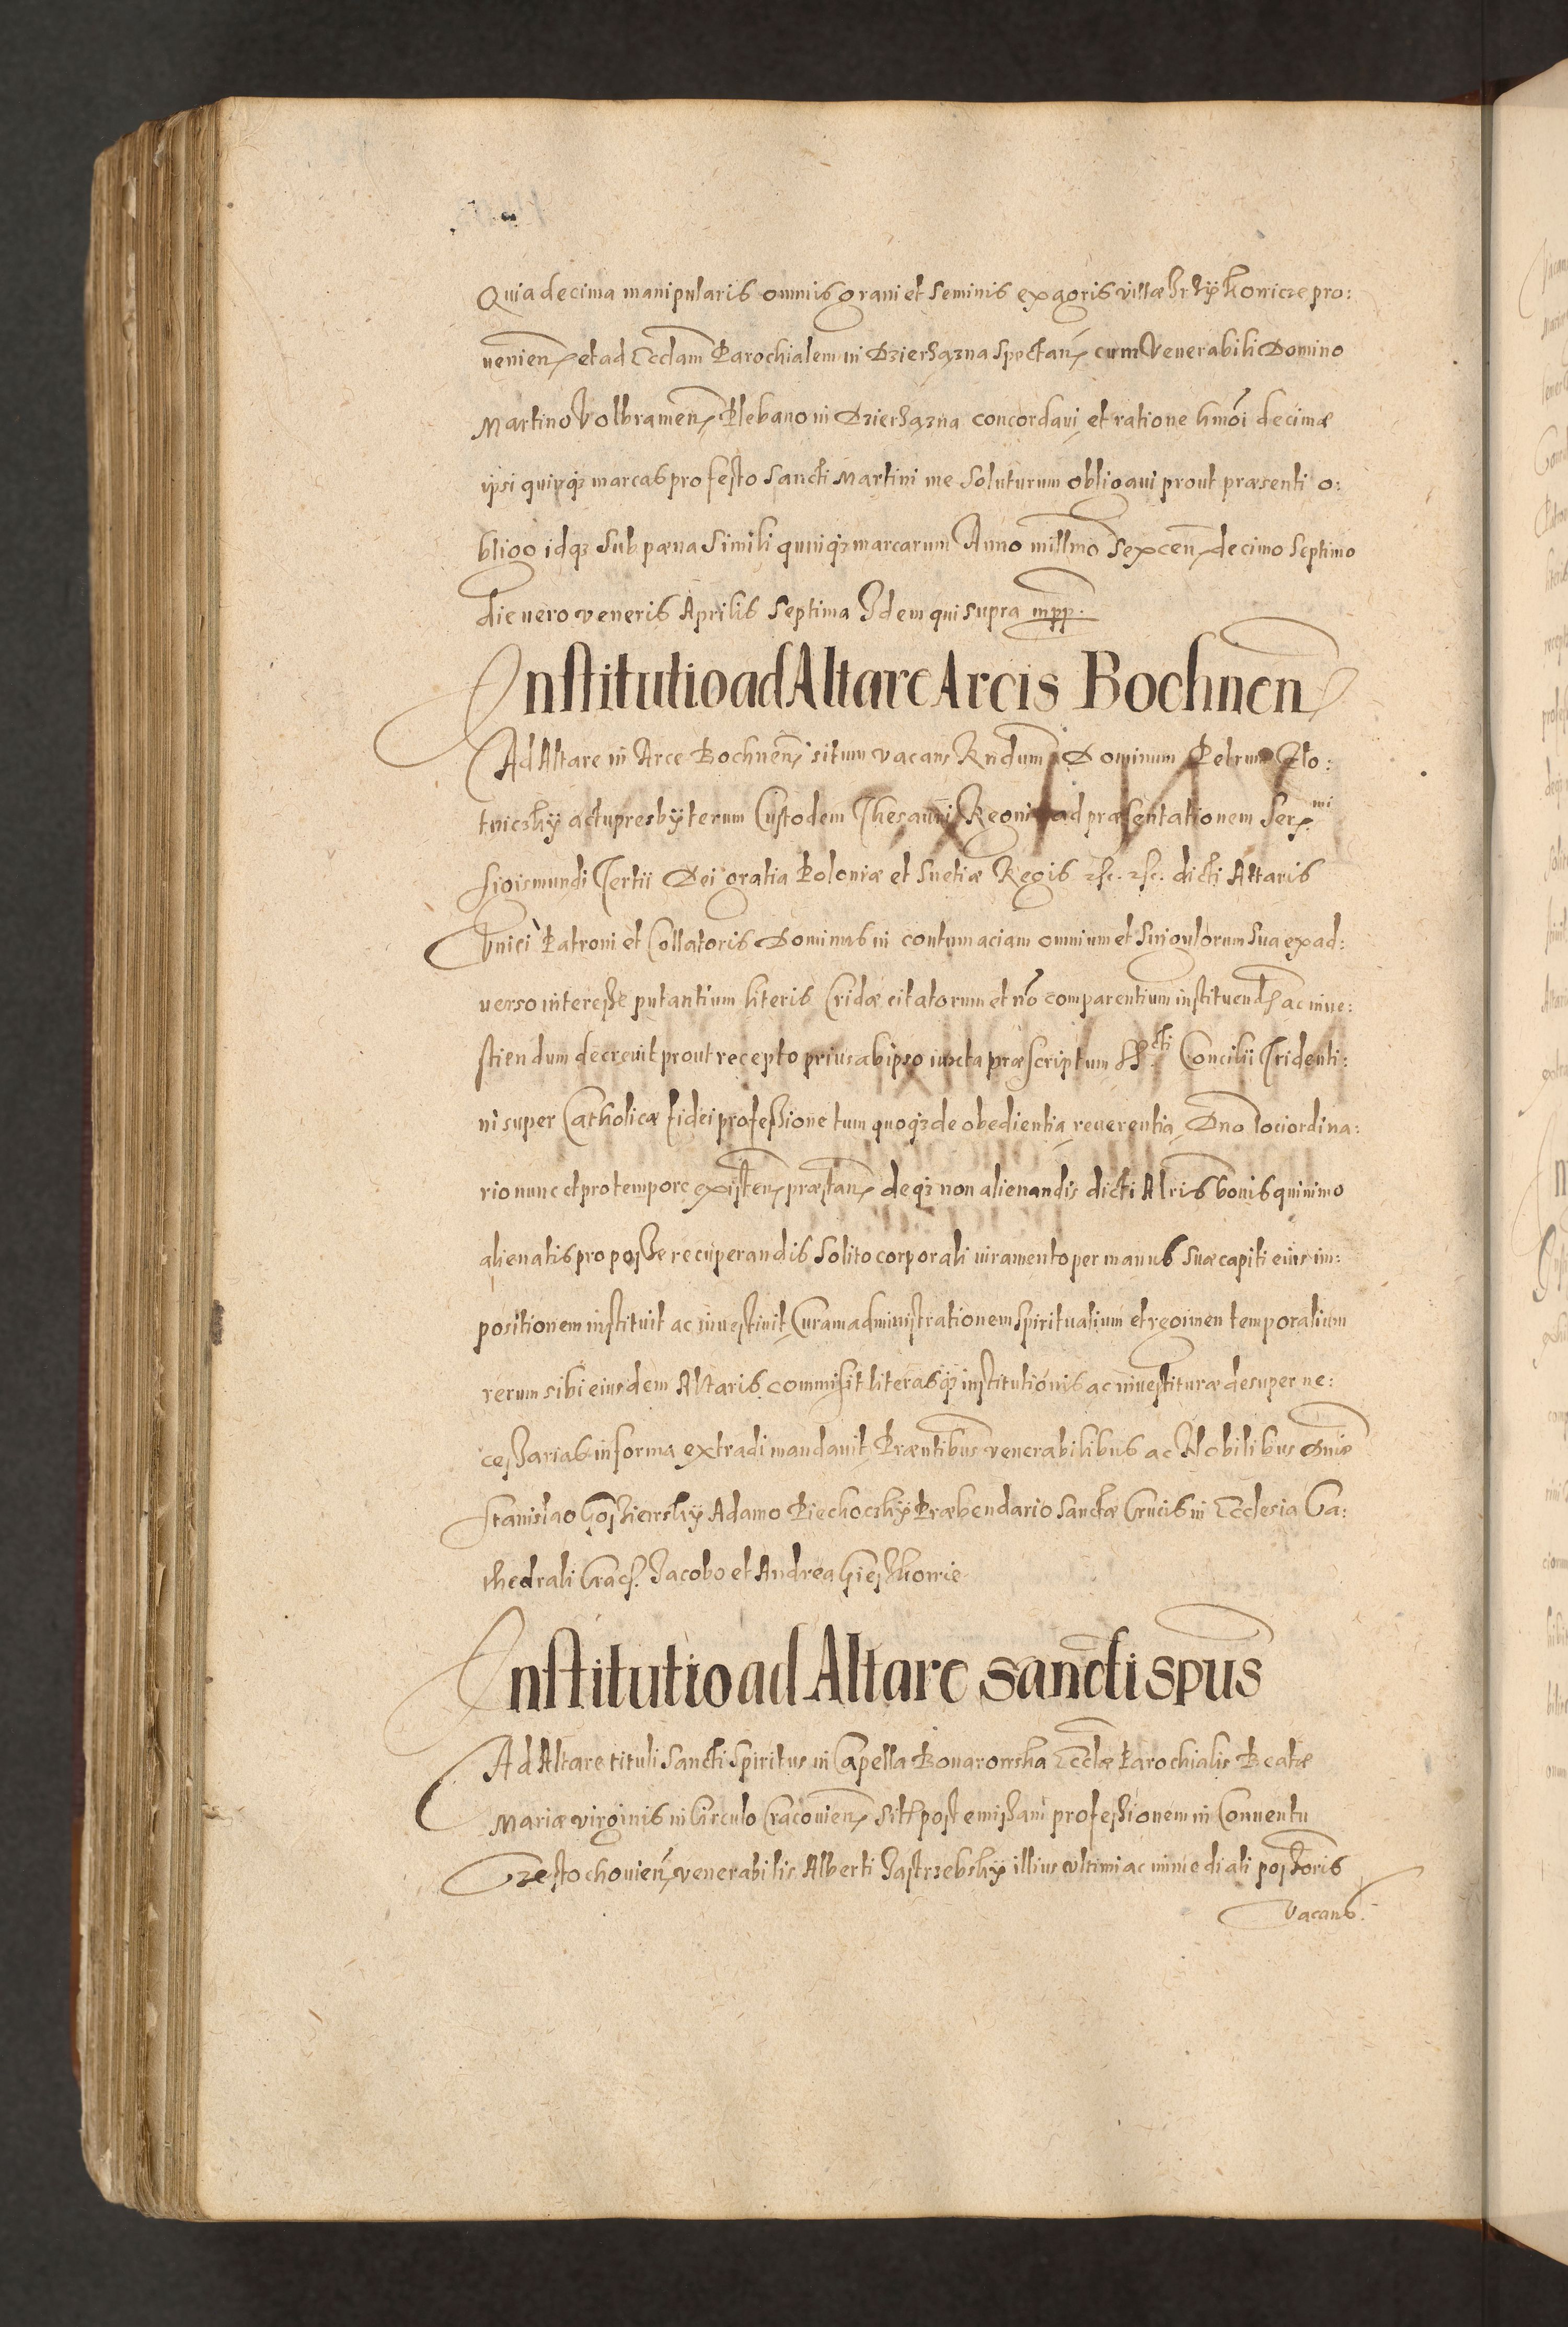 Quia decima manipularis omnis grani et seminis ex agris villæ pro:
venien. et ad Eccl̄am Parochialem in Dzierżązna spectan. cum Venerabili Domino
Martino Volbramen. Plebano in Dzierżązna concordavi et ratione hm̄oi decimæ
ipsi quinq3 marcas pro festo Sancti Martini me soluturum obligavi prout præsenti o:
bligo idq3 sub pæna simili quinq3 marcarum Anno millm̄o sexcen. decimo septimo
die vero veneris Aprilis septima Idem qui supra mpp.
Institutio ad Altare Arcis Bochnen
Ad Altare in Arce Bochnen. situm vacans Rndum Dominum Petrum Zło:
tniczky actu presbyterum Custodem Thesauri Regni ad præsentationem Ser.mi
Sigismundi Tertii Dei gratia Poloniæ et Suetiæ Regis etc. etc. dicti Altaris
Unici Patroni et Collatoris Dominus in contumaciam omnium et singulorum sua ex ad:
verso interesse putantium literis Cridæ citatorum et nō comparentium instituend. ac inve:
stiendum decrevit prout recepto prius ab ipso iuxta præscriptum SS.cti Concilii Tridenti:
ni super Catholicæ fidei professione tum quoq3 de obedientia, reverentia, Dno loci ordina:
rio nunc et pro tempore existen. præstan. deq3 non alienandis dicti Alt̄ris bonis quinimo
alienatis pro posse recuperandis solito corporali iuramento per manus suæ capiti eius im:
positionem instituit ac investivit Curam administrationem spiritualium et regimen temporalium
rerum sibi eiusdem Altaris commisit literasq3 institutionis ac investituræ desuper ne:
cessarias in forma extradi mandavit Præntibus venerabilibus ac Nobilibus Dnis
Stanislao Adamo Piechoczky Præbendario Sanctæ Crucis in Ecclesia Ca:
thedrali Crac. Jacobo et Andrea
Institutio ad Altare sancti spūs
Ad Altare tituli Sancti Spiritus in Capella Bonarowska Eccl̄æ Parochialis Beatæ
Mariæ virginis in Circulo Cracovien. sit. post emissam professionem in Conventu
Czestochovien. venerabilis Alberti Jastrzebsky illius ultimi ac immediati poss̄oris
vacans.